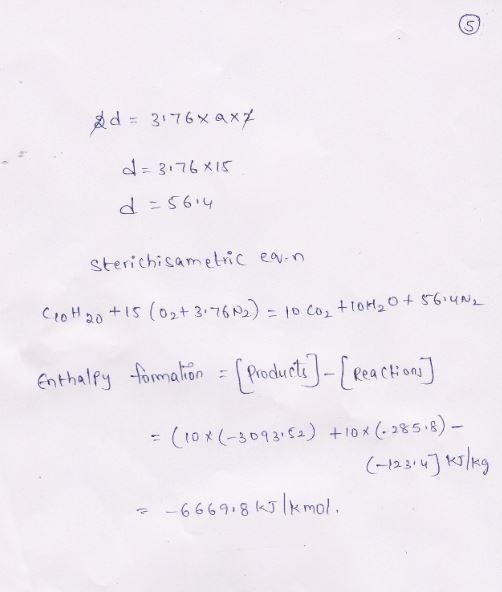 5
2d = 3.76 x a x 2
d = 3.76 x 15
d = 56.4
Sterichisametric eq.n
C10H20 + 15 (O2 + 3.76 N2) = 10 CO2 + 10H2O + 56.4N2
Enthalpy formation = [Products] - [Reactions]
= (10 x (-3093.52) + 10 x (-285.8) -
(-123.4] KJ/kg
= -6669.8 KJ/kmol.